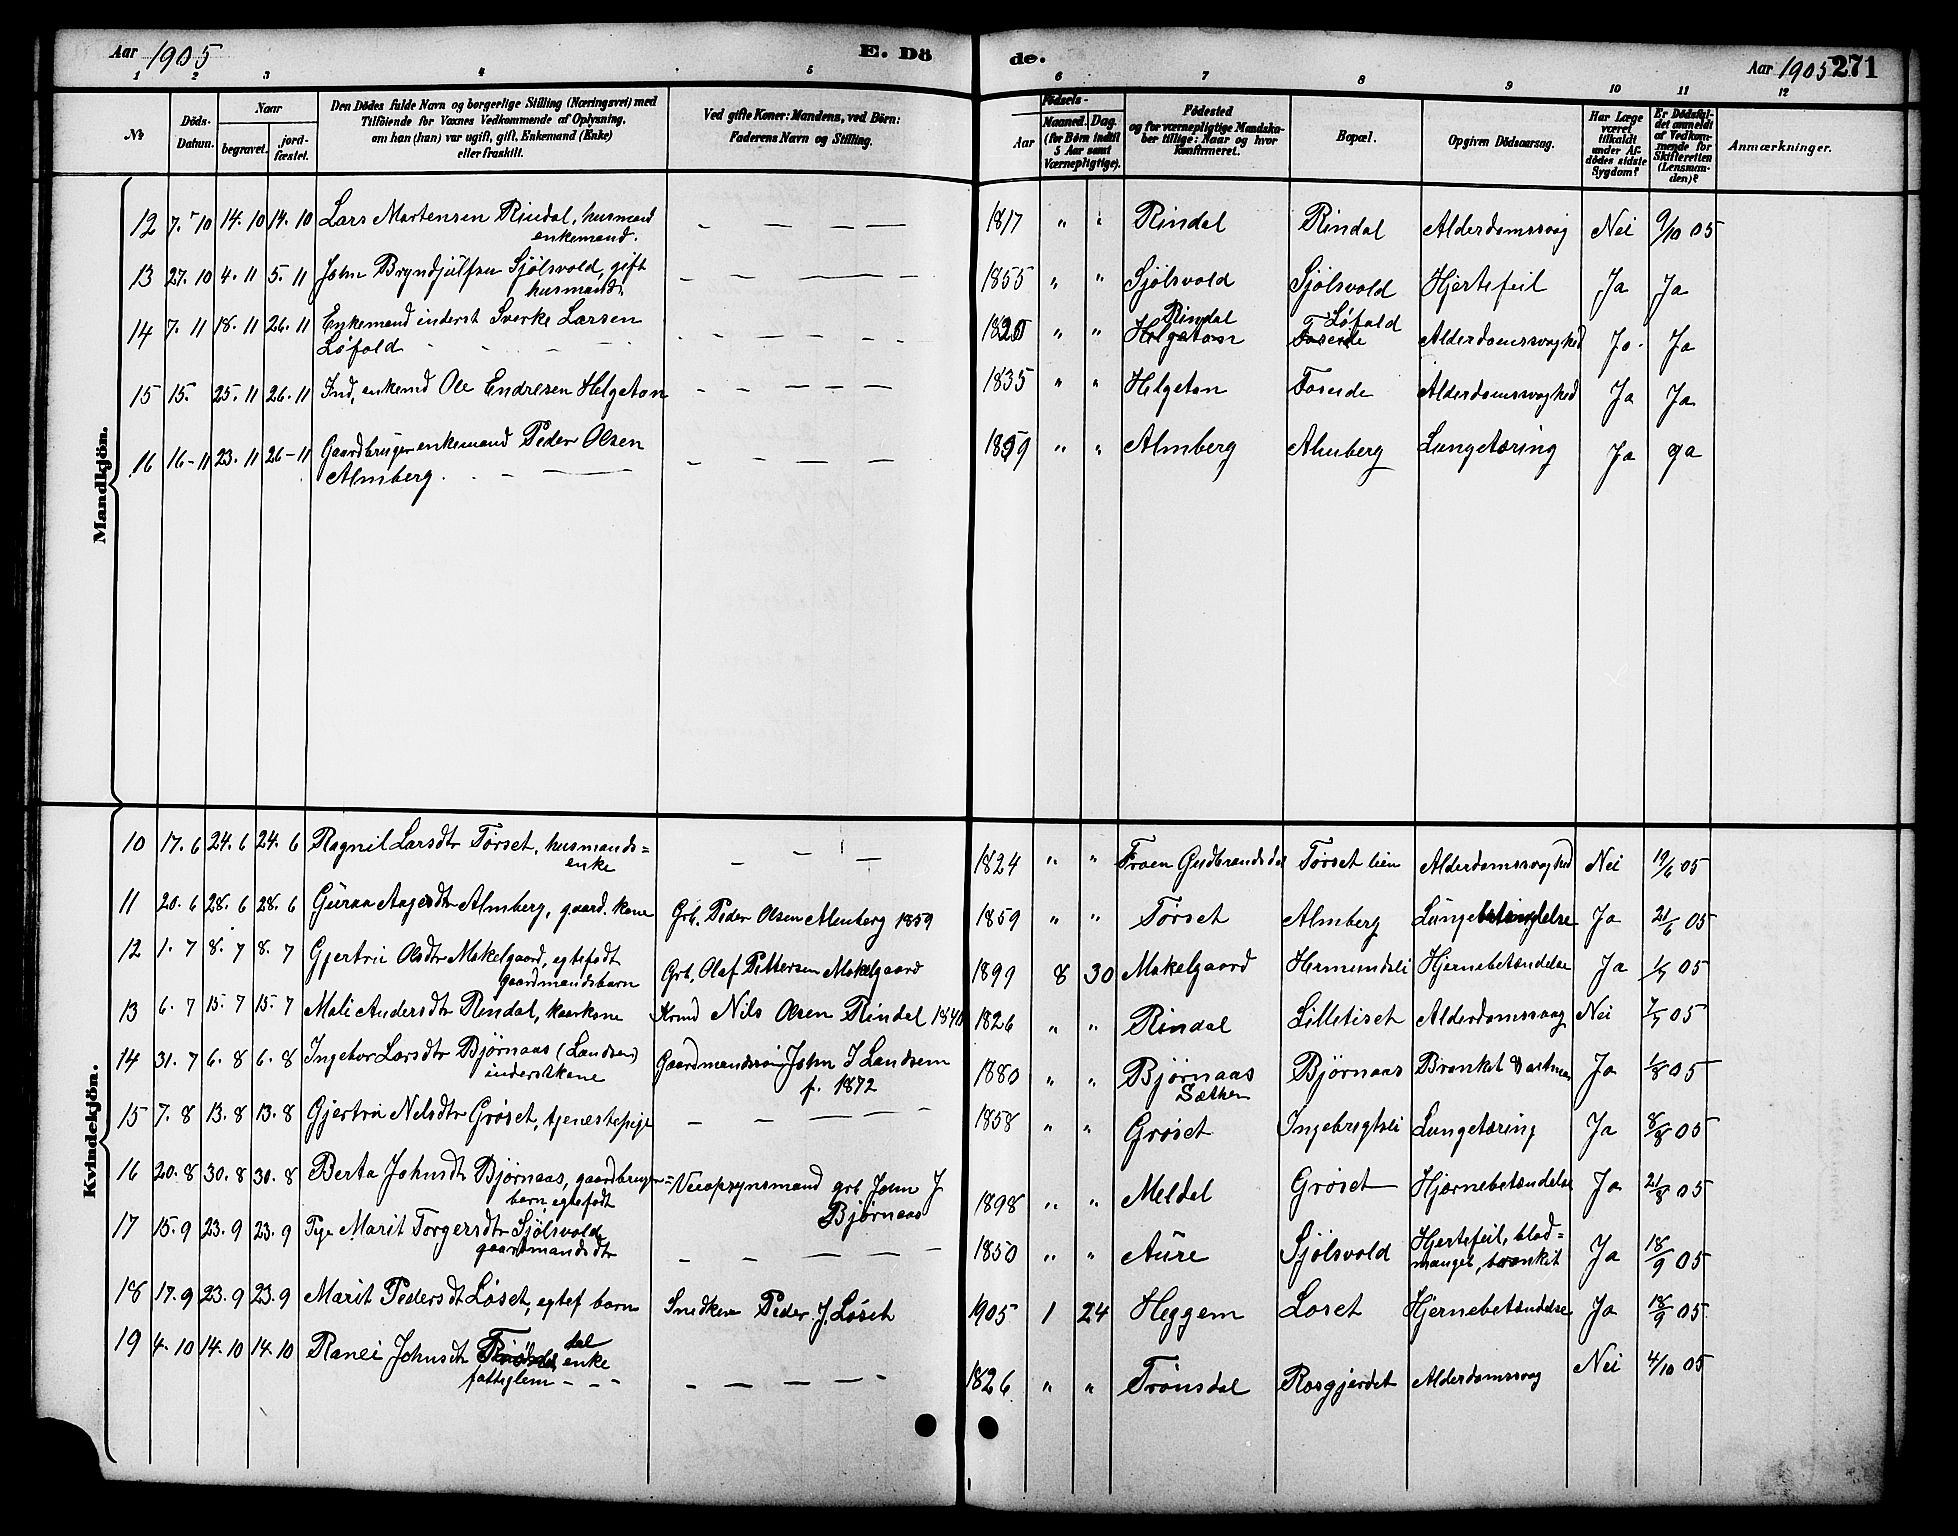 Aar 1905 E. Dö de. Aar 1905 271
1 2 3 4 5 6 7 8 9 10 11 12
№ Döds-Datum. Naar begravet. jord-fæstet. Den Dödes fulde Navn og borgerlige Stilling (Næringsvei) med Tilföiende for Voxnes Vedkommende af Oplysning, om han (hun) var ugift, gift, Enkemand (Enke) eller fraskilt. Ved gifte Koner: Mandens, ved Börn: Faderens Navn og Stilling. Födsels- Aar Maaned. Dag. (for Börn indtil 5 Aar samt Værnepligtige). Födested og for værnepligtige Mandska-ber tillige: Naar og hvor konfirmeret. Bopæl. Opgiven Dödsaarsag. Har Læge været tilkaldt under Af-dödes sidste Sygdom? Er Dödsfal-det anmeldt af Vedkom-mende for Skifteretten (Lensman-den)? Anmærkninger.
Mandkjön.
12 7. 10 14. 10 14. 10 Lars Martensen Rindal, husmand enkemand. — — — — 1817 " " Rindal Rindal Alderdomssvag Nei 9/10 05
13 27. 10 4. 11 5. 11 John Bryndjulfsen Sjölsvold, gift husmand. — — — 1855 " " Sjölsvold Sjölsvold Hjertefeil Ja Ja
14 7. 11 18. 11 26. 11 Enkemand inderst Sverke Larsen Löfald — — — — 1820 " " Rindal Helgeton Löfald Foseide Alderdomssvaghed Ja. Ja
15 15. 25. 11 26. 11 Ind. enkemd Ole Endresen Helgeton — — — — 1835 " " Helgeton Foseide Alderdomssvaghed Ja Ja
16 16-11 23. 11 26-11 Gaardbruger enkemand Peder Olsen Almberg. — — — — 1859 " " Almberg Almberg Lungetæring Ja Ja
Kvindekjön.
10 17. 6 24. 6 24. 6 Ragnil Larsdtr Törset, husmands= enke — — — 1824 " " Froen Gudbrandsdal Törset lien Alderdomssvaghed Nei 19/6 05
11 20. 6 28. 6 28. 6 Guraa Aagesdtr Almberg, gaard. kone Grb. Peder Olsen Almberg 1859 1859 " " Törset Almberg Lungebetændelse Ja 21/6 05
12 1. 7 8. 7 8. 7 Gjertru Olsdtr Mokelgaard, egtefødt gaardmandsbarn Grb. Olaf Pettersen Mokelgaard 1899 8 30 Mokelgaard Hermundsli Hjernebetændelse Ja 1/7 05
13 6. 7 15. 7 15. 7 Mali Andersdtr Rindal, kaarkone Krmd Nils Olsen Rindal 1840 1826 " " Rindal Lilletiset Alderdomssvag Nei 7/7 05
14 31. 7 6. 8 6. 8 Ingebor Larsdtr Bjørnaas (Landsem) inderstkone Gaardmandssön John I Landsem f. 1872 1880 " " Bjørnaas Sæther Bjørnaas Bronkit & astma Ja 1/8 05
15 7. 8 13. 8 13. 8 Gjertru Nelsdtr Grøset, tjenestepige — — — — 1858 " " Grøset Ingebrigtsli Lungetæring Ja 8/8 05
16 20. 8 30. 8 30. 8 Berta Johnsdt Bjørnaas, gaardbruger= barn, egtefødt Veiopsynsmand grb. John J Bjørnaas 1898 " " Meldal Grøset Hjernebetændelse Ja 21/8 05
17 15. 9 23. 9 23. 9 Pige Marit Torgersdtr Sjölsvold gaardmandsdtr — — — — 1850 " " Aure Sjölsvold Hjertefeil, blod= mangel, bronkit Ja 18/9 05
18 17. 9 23. 9 23. 9 Marit Pedersdt Löset, egtef barn Snedker Peder J. Löset 1905 1 24 Heggem Løset Hjernebetændelse Ja 18/9 05
19 4. 10 14. 10 14. 10 Ranei Johnsdt dal enke fattiglem — — — — 1826 " " Trönsdal Rosgjerdet Alderdomssvag Nei 4/10 05